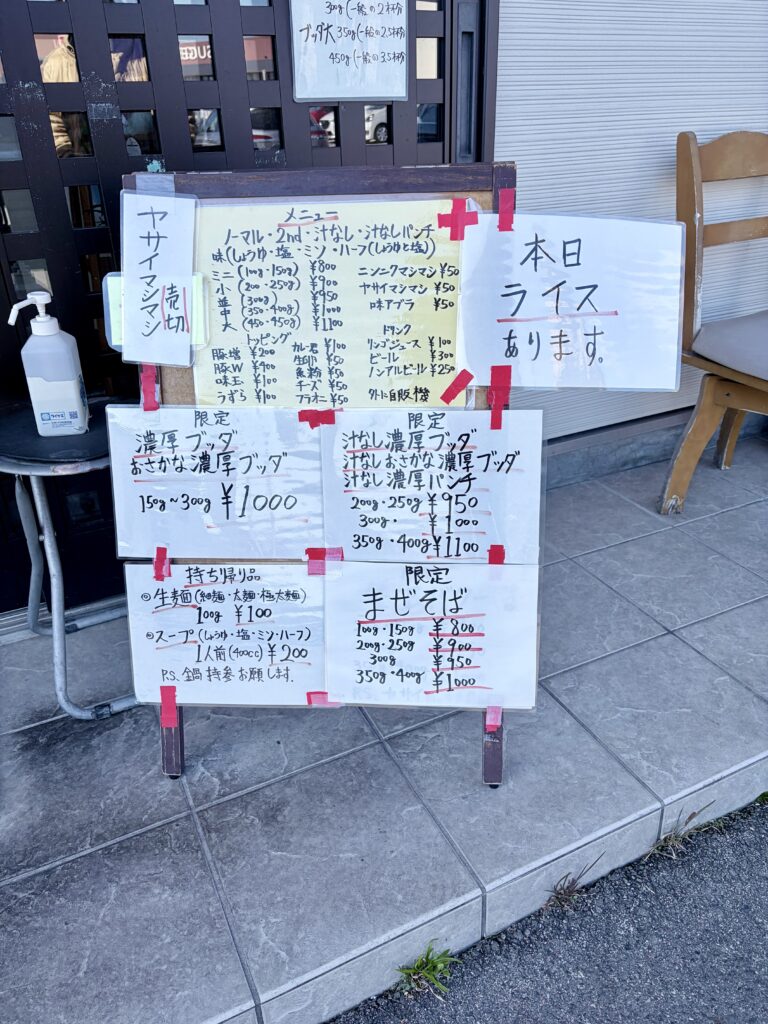 300g(一般の2杯分
ブッダ大 350g(一般の2.5杯分
450g(一般の3.5杯分
ヤサイマシマシ
売切
メニュー
ノーマル・2nd・汁なし・汁なしパンチ
味(しょうゆ・塩・ミソ・ハーフ(しょうゆと塩)
ミニ (100g・150g) ¥800
小 (200・250g) ¥900
並 (300g) ¥950
中 (350・400g) ¥1000
大 (450・450g) ¥1100
ニンニクマシマシ ¥50
ヤサイマシマシ ¥50
味アブラ ¥50
トッピング
豚増 ¥200
豚W ¥400
味玉 ¥100
うずら ¥100
カレー君 ¥100
生卵 ¥50
魚粉 ¥50
チーズ ¥50
フラオニ ¥50
ドリンク
リンゴジュース ¥100
ビール ¥300
ノンアルビール ¥250
外に自販機
本日
ライス
あります。
限定
濃厚ブッダ
おさかな濃厚ブッダ
150g~300g ¥1000
限定
汁なし濃厚ブッダ
汁なしおさかな濃厚ブッダ
汁なし濃厚パンチ
200g・250g ¥950
300g・ ¥1000
350g・400g ¥1100
持ち帰り品
生麺(細麺・太麺・極太麺)
100g ¥100
スープ(しょうゆ・塩・ミソ・ハーフ)
1人前(400cc) ¥200
P.S.鍋持参お願します。
限定
まぜそば
100g・150g ¥800
200g・250g ¥900
300g ¥950
350g・400g ¥1000